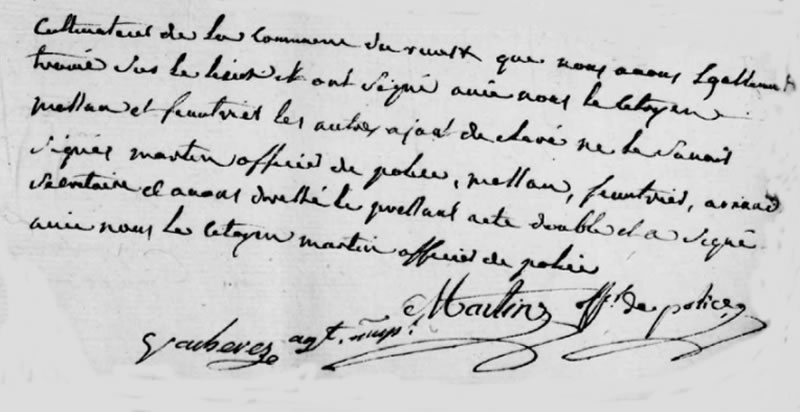 Cultivateurs de la Commune du que nous avons Egallement
trouvé sur le lieu et ont Signé avec nous le Citoyen
mellan et les autres ajant declaré ne le Savoir
Signés martin officier de police, mellan, , arnaud
Secretaire et avons dressé le pressant acte double et a Signé
avec nous le Citoyen martin officier de police
Martin off.r de police
agt. mup.l